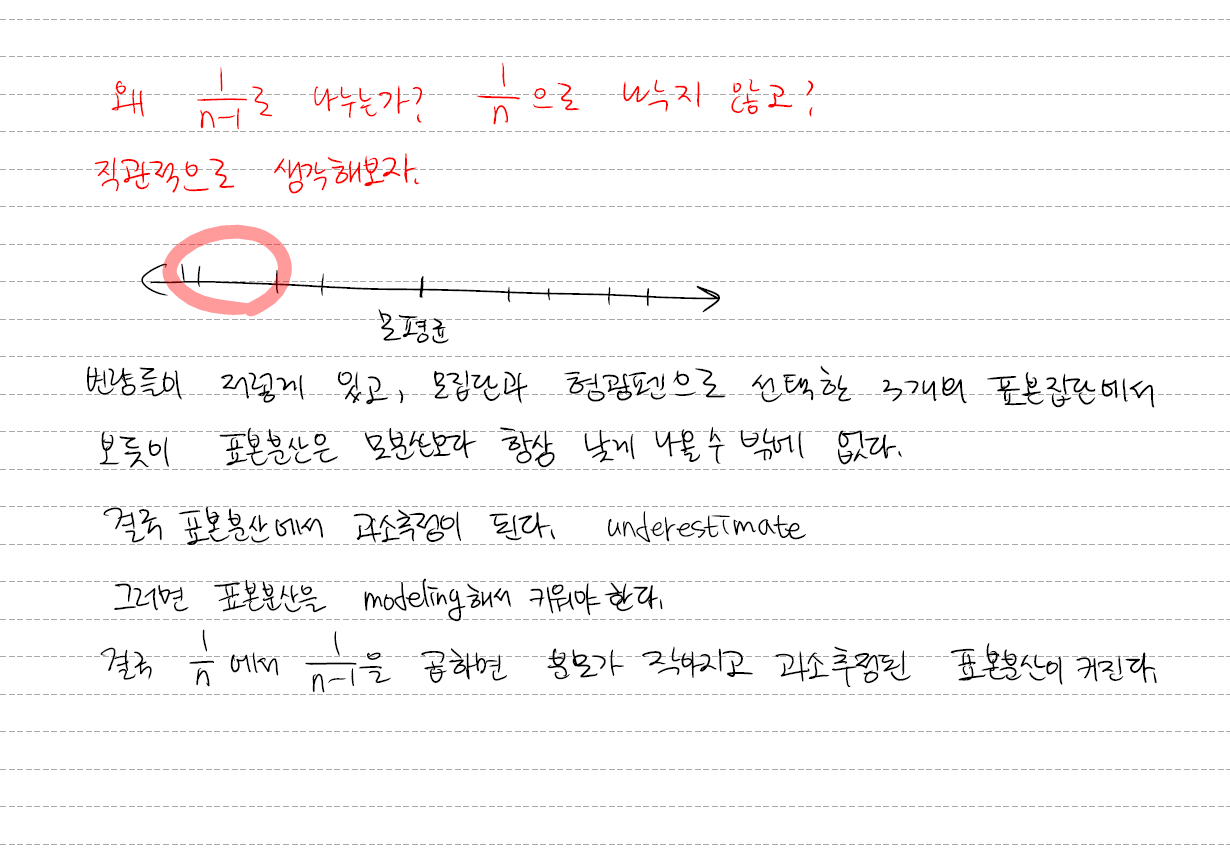 왜 1/(n-1)로 나누는가? 1/n으로 나누지 않고?
직관적으로 생각해보자.
모평균
변량들이 저렇게 있고, 모집단과 형광펜으로 선택한 3개의 표본집단에서
보듯이 표본분산은 모분산보다 항상 낮게 나올 수 밖에 없다.
결국 표본분산에서 과소추정이 된다. underestimate
그러면 표본분산을 modeling해서 키워야 한다.
결국 1/n에서 1/(n-1)을 곱하면 분모가 작아지고 과소추정된 표본분산이 커진다.